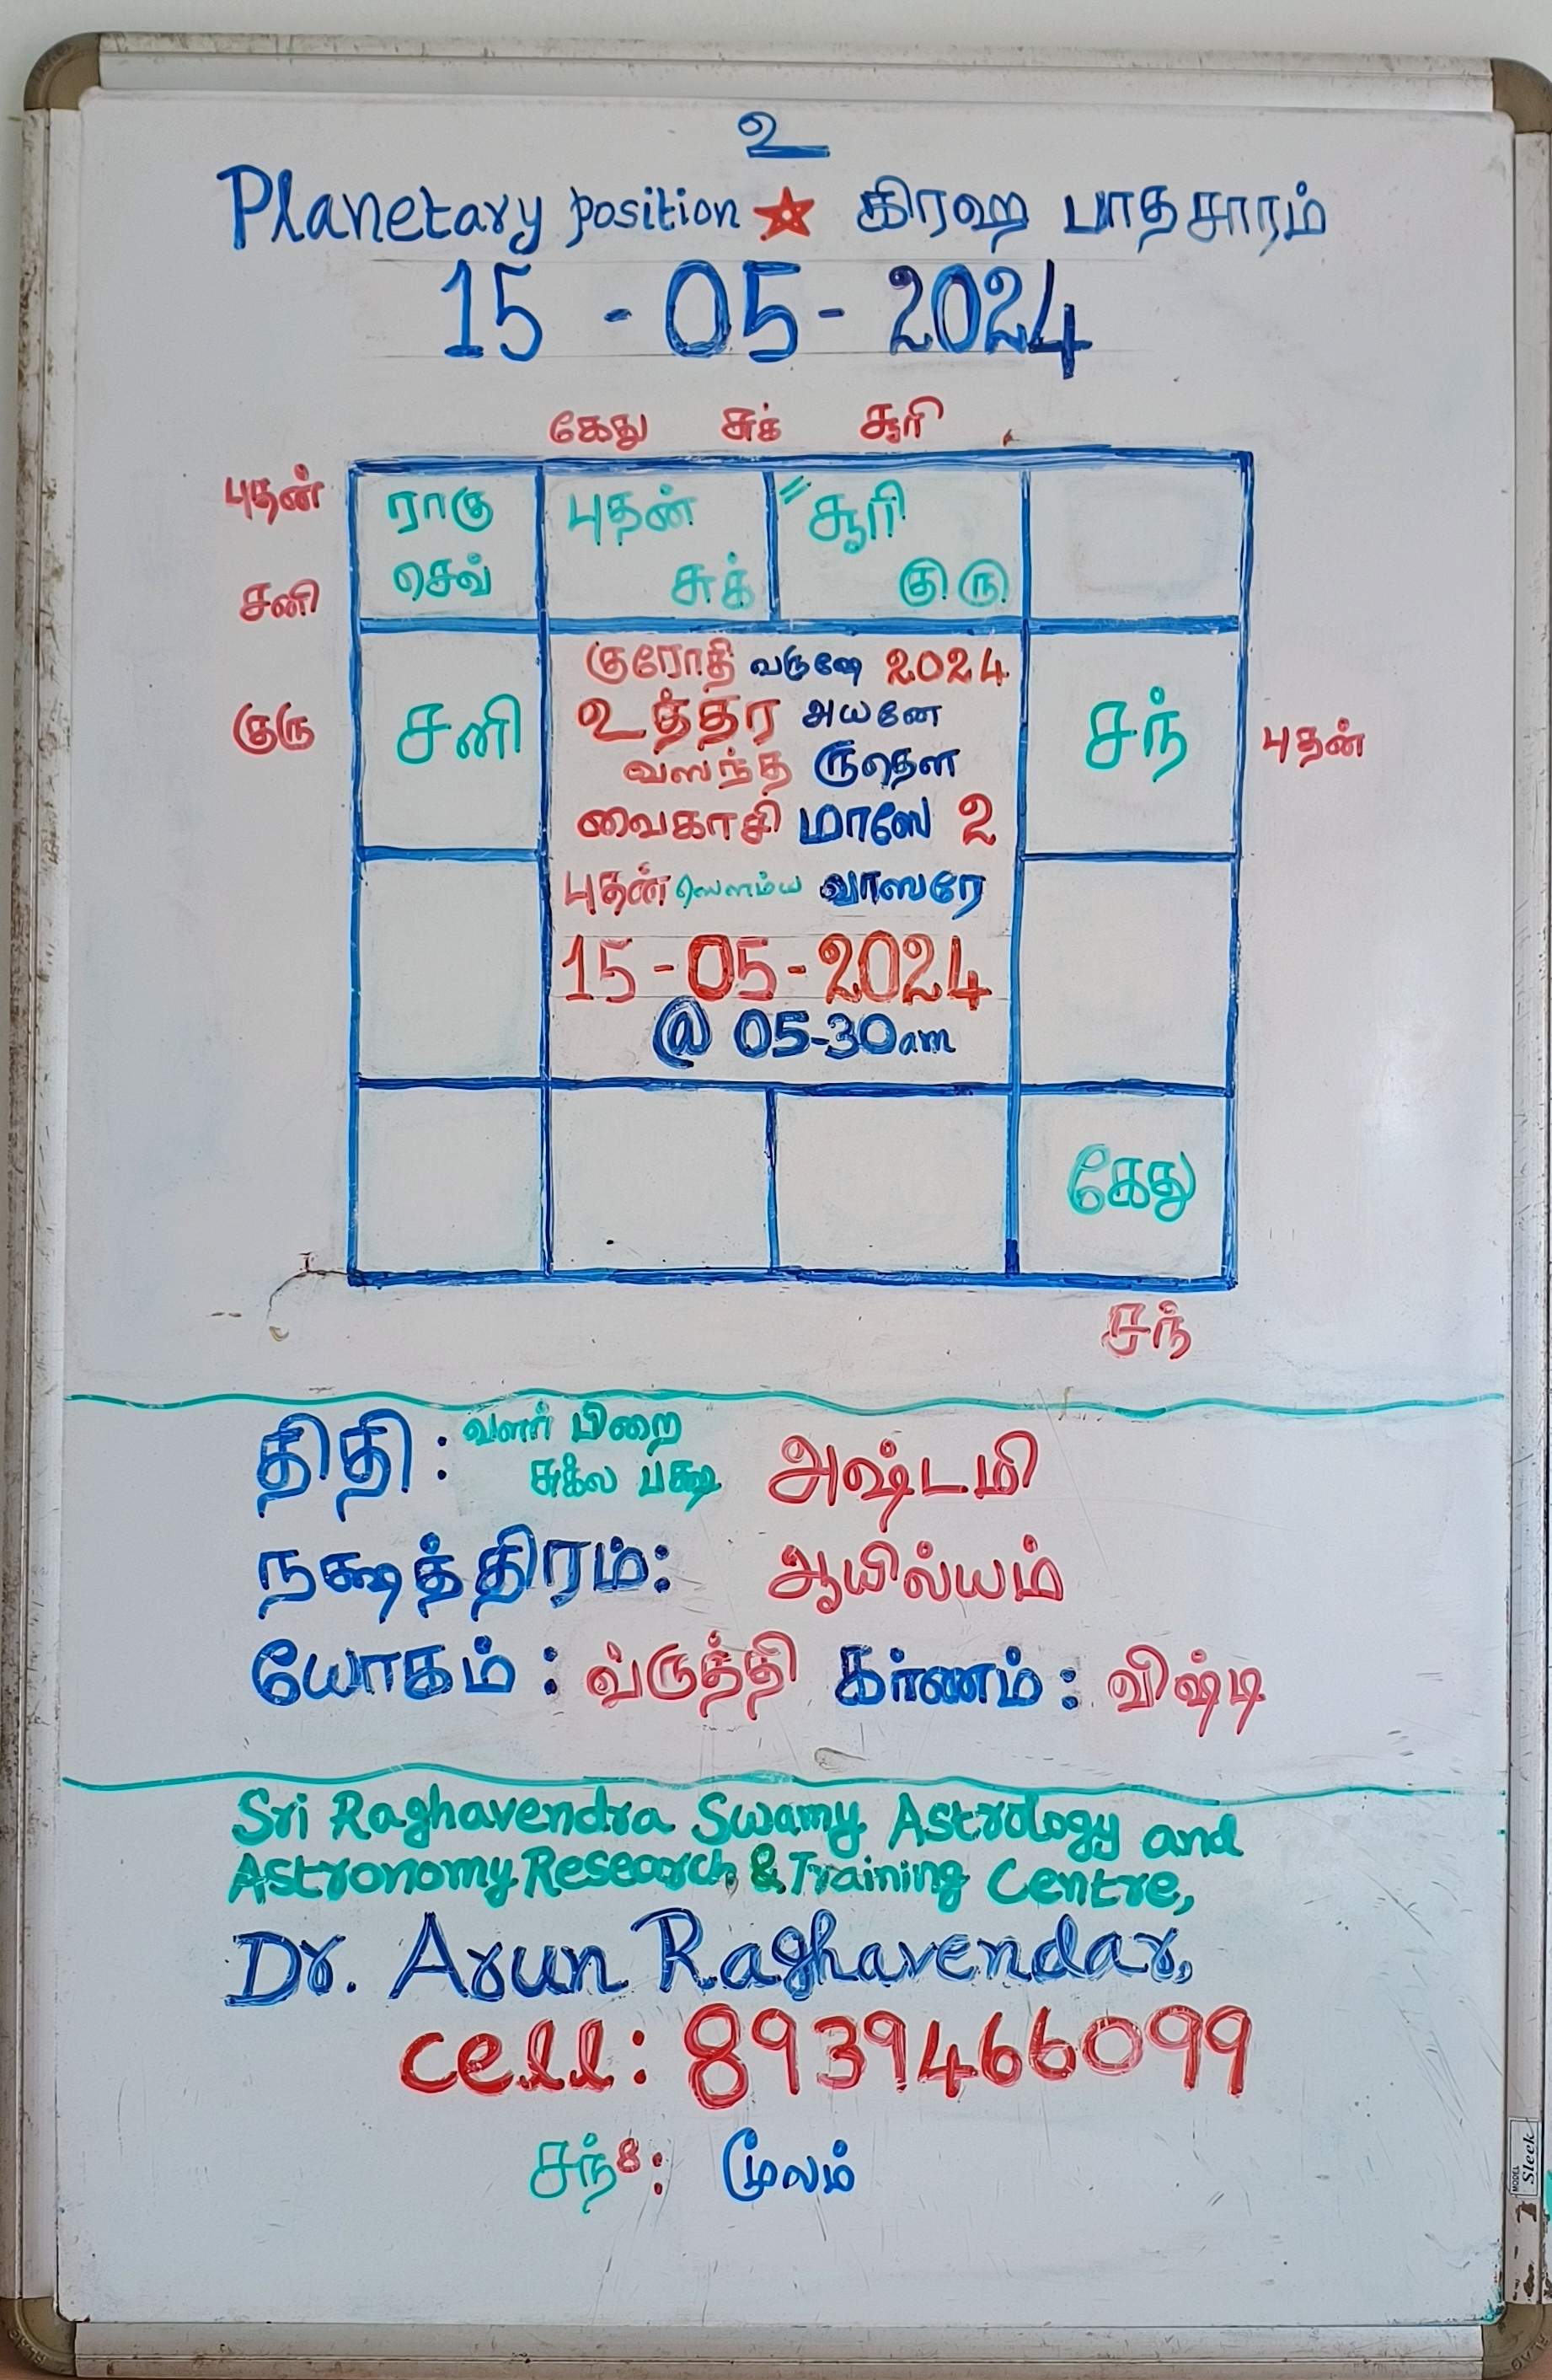 உ
Planetary position ★ கிரஹ பாதசாரம்
15 - 05 - 2024
கேது சுக் சூரி
புதன்
ராகு புதன் " சூரி
செவ் சுக் குரு
சனி
குரோதி வருஷே 2024
உத்தர அயனே
குரு சனி சந் புதன்
வஸந்த ருதௌ
வைகாசி மாஸே 2
புதன் ஸௌம்ய வாஸரே
15-05-2024
@ 05-30am
கேது
சந்
திதி : வளர் பிறை
சுக்ல பக்ஷ அஷ்டமி
நக்ஷத்திரம்: ஆயில்யம்
யோகம் : வ்ருத்தி கர்ணம் : விஷ்டி
Sri Raghavendra Swamy Astrology and
Astronomy Research & Training Centre,
Dr. Arun Raghavendar,
cell: 8939466099
சந் 8: மூலம்
MODEL
Sleek